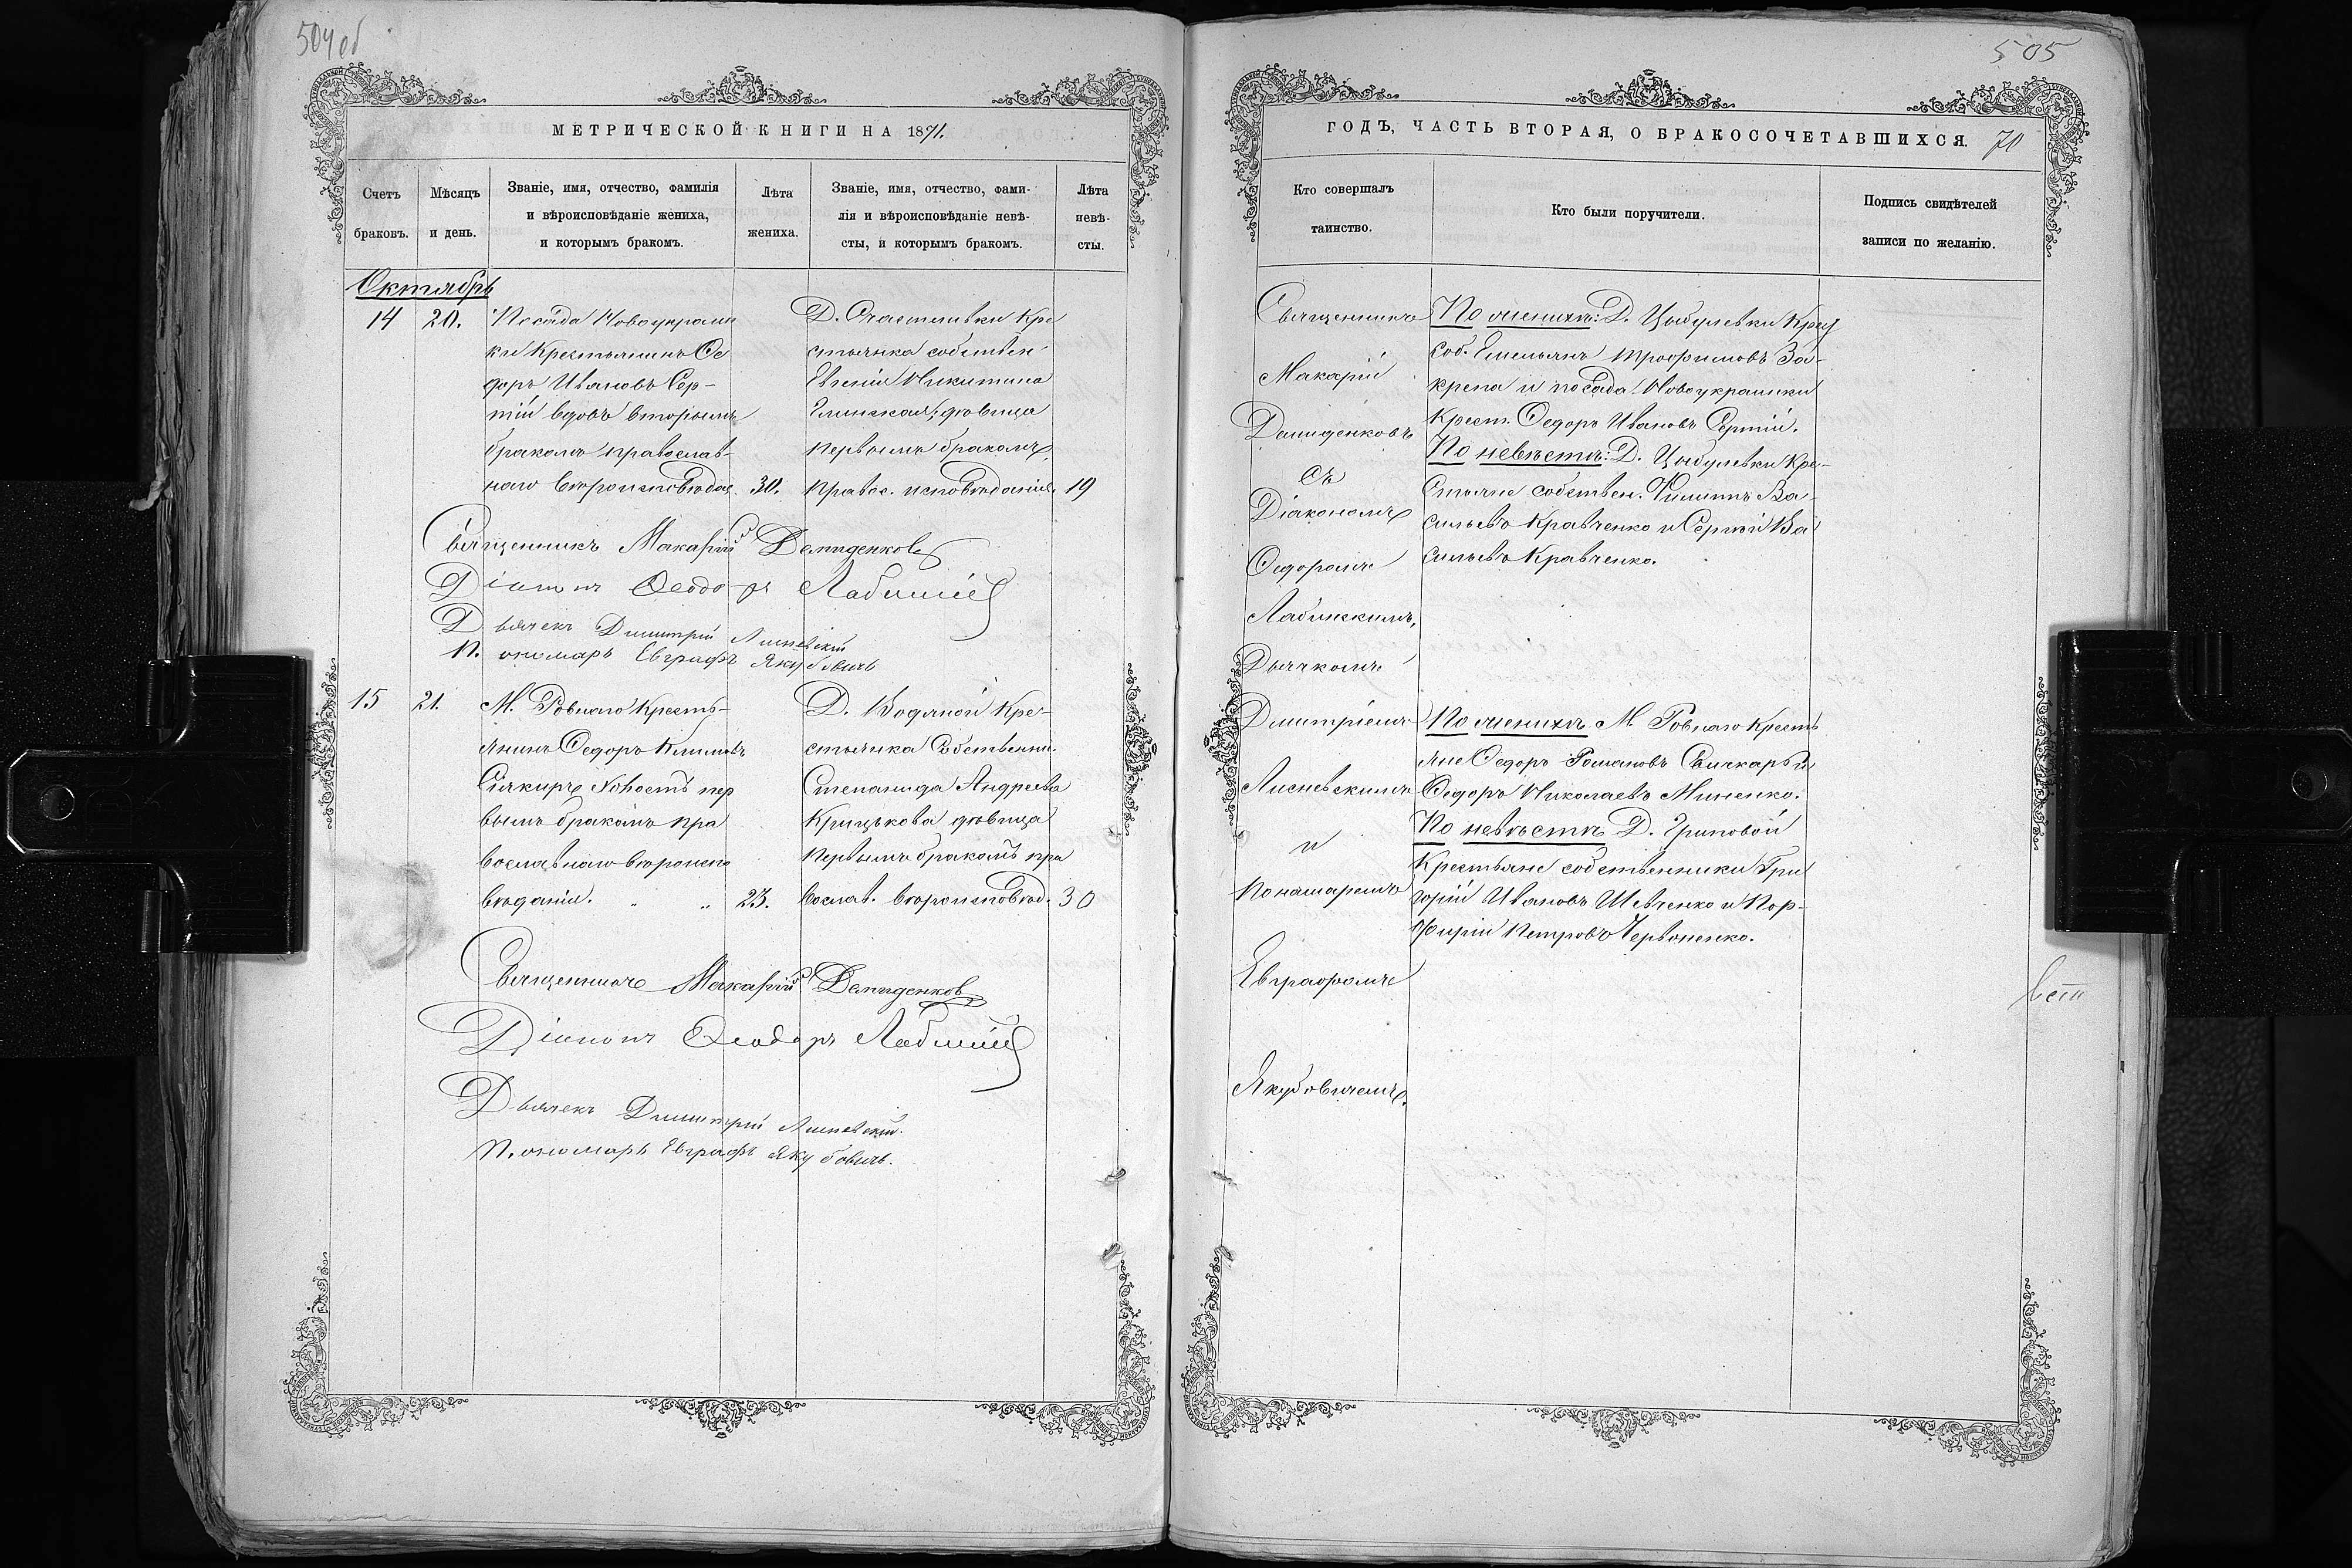 504 об
МЕТРИЧЕСКОЙ КНИГИ НА 1871.
Счетъ браковъ.
Мѣсяцъ и день.
Званіе, имя, отчество, фамилія
и вѣроисповѣданіе жениха,
и которымъ бракомъ.
Лѣта жениха.
Званіе, имя, отчество, фами-
лія и вѣроисповѣданіе невѣ-
сты, и которымъ бракомъ.
Лѣта невѣ-
сты.
Октябрь
14
20.
Посада Новоукраин
ки Крестьянинъ Ѳе
доръ Ивановъ Сер-
гій вдовъ вторымъ
бракомъ православ-
наго вѣроисповѣда
30.
Д. Счастливки Кре
стьянка собствен
Евгенія Никитина
дѣвица
первымъ бракомъ
правос. исповѣданія.
19
Священникъ Макарій Демиденковъ
Діаконъ Ѳеодоръ Лабинскій
Дьячекъ Димитрій Лисневскій
Пономарь Евграфъ Якубовичъ
15
21.
М. Ровнаго Кресть-
янинъ Ѳедоръ Климовъ
Сичкарь холостъ пер
вымъ бракомъ пра
вославнаго вѣроиспо
вѣданія. " "
23.
Д. Водяной Кре-
стьянка Собственн.
Степанида Андреева
Крицькова дѣвица
первымъ бракомъ пра
вослав. вѣроисповѣд.
30
Священникъ Макарій Демиденков
Діаконъ Ѳеодоръ Лабинскій
Дьячекъ Димитрій Лисневскій.
Пономарь Евграфъ Якубовичъ.
505
ГОДЪ, ЧАСТЬ ВТОРАЯ, О БРАКОСОЧЕТАВШИХСЯ.
70
Кто совершалъ
таинство.
Кто были поручители.
Подпись свидѣтелей
записи по желанію.
Священникъ
Макарій
Демиденковъ
съ
Діакономъ
Ѳедоромъ
Лабинскимъ,
Дьячкомъ
Димитріемъ
Лисневскимъ
и
Понамаремъ
Евграфомъ
Якубовичемъ.
По женихѣ: Д. Цыбулевки Крес
соб. Емельянъ Трофимовъ За-
крепа и посада Новоукраинки
Крест. Ѳедоръ Ивановъ Сергій.
По невѣстѣ: Д. Цыбулевки Кре-
стьяне собствен. Филиппъ Ва-
сильевъ Кравченко и Сергѣй Ва
сильевъ Кравченко.
По женихѣ М. Ровнаго Кресть
яне Ѳедоръ Романовъ Сичкарь и
Ѳедоръ Николаевъ Миненко.
По невѣстѣ Д. Гриповой
Крестьяне собственники Гри
горій Ивановъ Шевченко и Пор-
фирій Петровъ Червоненко.